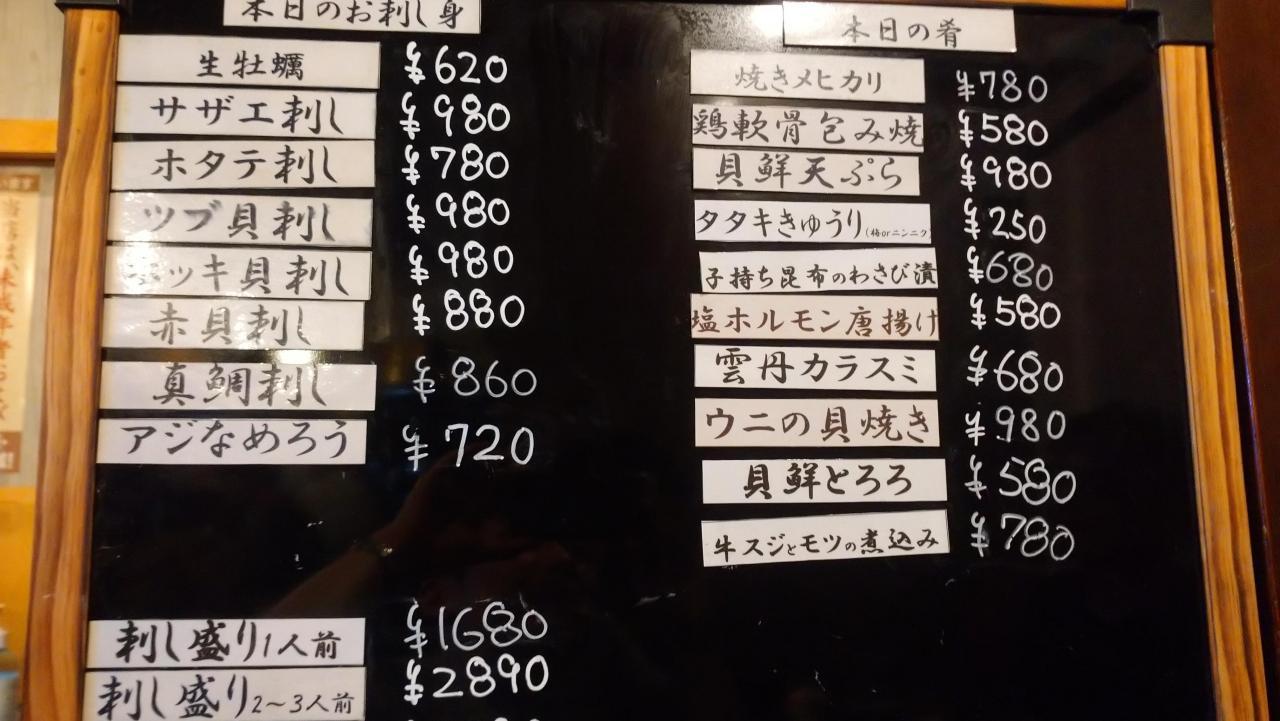 本日のお刺し身
生牡蠣 ¥620
サザエ刺し ¥980
ホタテ刺し ¥780
ツブ貝刺し ¥980
ホッキ貝刺し ¥980
赤貝刺し ¥880
真鯛刺し ¥860
アジなめろう ¥720
刺し盛り1人前 ¥1680
刺し盛り2～3人前 ¥2890
本日の肴
焼きメヒカリ ¥780
鶏軟骨包み焼 ¥580
貝鮮天ぷら ¥980
タタキきゅうり(梅orニンニク) ¥250
子持ち昆布のわさび漬 ¥680
塩ホルモン唐揚げ ¥580
雲丹カラスミ ¥680
ウニの貝焼き ¥980
貝鮮とろろ ¥580
牛スジとモツの煮込み ¥780